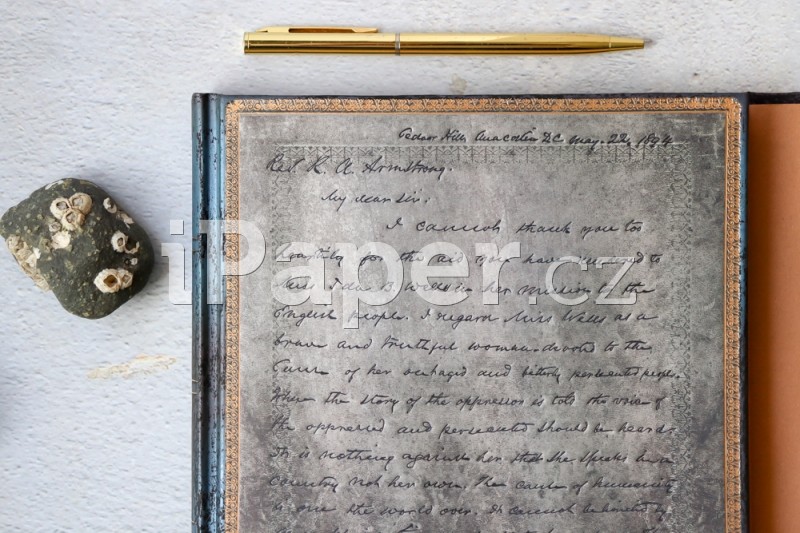 Cedar Hill, Anacostia D.C. May. 22, 1894
Rev. R. A. Armstrong.
My dear Sir:
I cannot thank you too
heartily for the aid you have rendered to
Miss Ida B. Wells in her mission to the
English people. I regard Miss Wells as a
brave and truthful woman devoted to the
cause of her outraged and bitterly persecuted people.
When the story of the oppressor is told the voice of
the oppressed and persecuted should be heard.
It is nothing against her that she speaks in a
country not her own. The cause of humanity
is one the world over. It cannot be bounded by
iPaper.cz